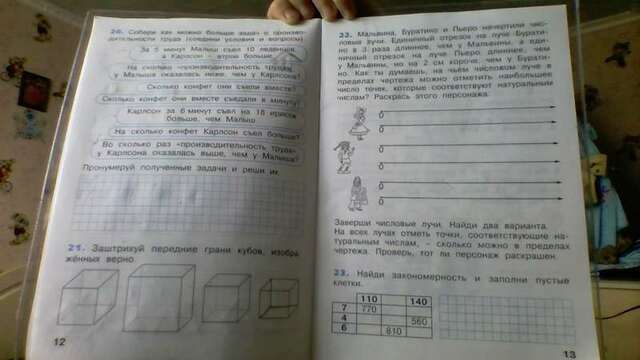 20. Собери как можно больше задач о произво-
дительности труда (соедини условия и вопросы)
За 5 минут Малыш съел 10 леденцов,
а Карлсон – втрое больше.
На сколько «производительность труда»
у Малыша оказалась ниже, чем у Карлсона?
Сколько конфет они съели вместе?
Сколько конфет они вместе съедали в минуту?
Карлсон за 6 минут съел на 18 ирисок
больше, чем Малыш
На сколько конфет Карлсон съел больше?
Во сколько раз «производительность труда»
у Карлсона оказалась выше, чем у Малыша?
Пронумеруй полученные задачи и реши их.
21. Заштрихуй передние грани кубов, изобра-
жённых верно.
12
22. Мальвина, Буратино и Пьеро начертили чис-
ловые лучи. Единичный отрезок на луче Бурати-
но в 3 раза длиннее, чем у Мальвины, а еди-
ничный отрезок на луче Пьеро длиннее, чем
у Мальвины, но на 2 см короче, чем у Бурати-
но. Как ты думаешь, на чьём числовом луче в
пределах чертежа можно отметить наибольшее
число точек, которые соответствуют натуральным
числам? Раскрась этого персонажа.
0
0
0
0
0
0
Заверши числовые лучи. Найди два варианта.
На всех лучах отметь точки, соответствующие на-
туральным числам, – сколько можно в пределах
чертежа. Проверь, тот ли персонаж раскрашен.
23. Найди закономерность и заполни пустые
клетки.
110 140
7 770
4 560
6 810
13